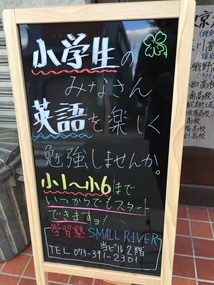 小学生の
みなさん
英語を楽しく
勉強しませんか。
小1〜小6まで
いつからでもスタート
できますョ!
学習塾 SMALL RIVER
当ビル2階
TEL 075-391-2301